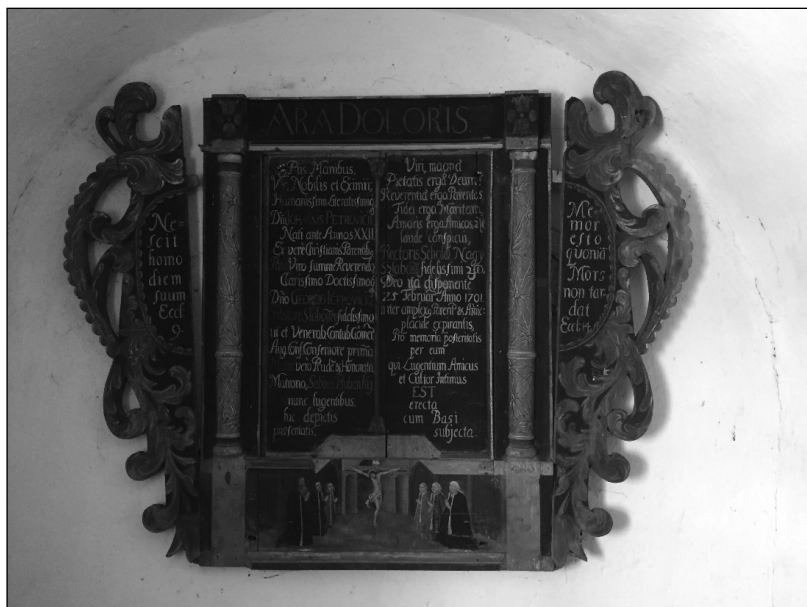 ARA DOLORIS.
Ne-
scit
homo
diem
suum
Eccl
9.
Piis Manibus,
Viri Nobilis et Eximii,
Humanissim Literatissimiq
Dni
Nati ante Annos XXII
Ex vere Christianis Parentib9
Viro summe Reverendo
Clarissimo Doctissimoq
Dno
fidelissimo
ut et Venerab Contub
primario
vero
Matrona,
nunc lugentibus,
hic depictis
præsematis.
Viri, magna
Pietatis ergà Deum,
Reverentiâ ergà Parentes
Fidei ergà Maritam,
Amoris ergà Amicos
laude conspicui,
Rectoris Scholæ Nagy
fidelissimi
Deo ità disponente
25 Februar Anno 1701
inter amplexus Parent et Amic
placide expirantis,
Pro memoria posteritatis
per eum
qui Lugentium Amicus
et Cultor Intimus
EST
erecta
cum Basi
subjecta.
Me-
mor
esto
quoniã
Mors
non tar-
dat
Eccl. 14.